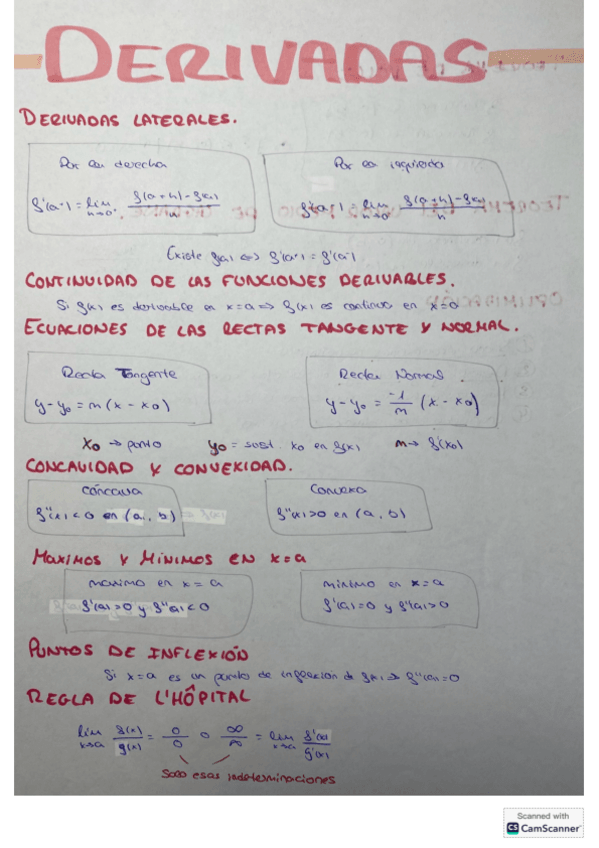 DERIVADAS
DERIVADAS LATERALES.
Por la derecha
Por la izquierda
f'(a⁺) = lim h→0⁺ f(a+h)-f(a) / h
f'(a⁻) = lim h→0⁻ f(a+h)-f(a) / h
Existe f(a) ⇔ f'(a⁺) = f'(a⁻)
CONTINUIDAD DE LAS FUNCIONES DERIVABLES.
Si f(x) es derivable en x=a ⇒ f(x) es continua en x=a
ECUACIONES DE LAS RECTAS TANGENTE Y NORMAL.
Recta Tangente
Recta Normal
y-y₀ = m(x-x₀)
y-y₀ = -1/m (x-x₀)
x₀ → punto
y₀ = sust. x₀ en f(x)
m → f'(x₀)
CONCAVIDAD Y CONVEXIDAD.
cóncava
Convexa
f''(x) < 0 en (a, b)
f''(x) > 0 en (a, b)
MAXIMOS Y MÍNIMOS EN x=a
maximo en x=a
minimo en x=a
f'(a) = 0 y f''(a) < 0
f'(a) = 0 y f''(a) > 0
PUNTOS DE INFLEXIÓN
Si x=a es un punto de inflexión de f(x) ⇒ f''(a) = 0
REGLA DE L'HÔPITAL
lim x→a f(x)/g(x) = 0/0 o ∞/∞ = lim x→a f'(x)/g'(x)
Solo esas indeterminaciones
Scanned with
CS CamScanner